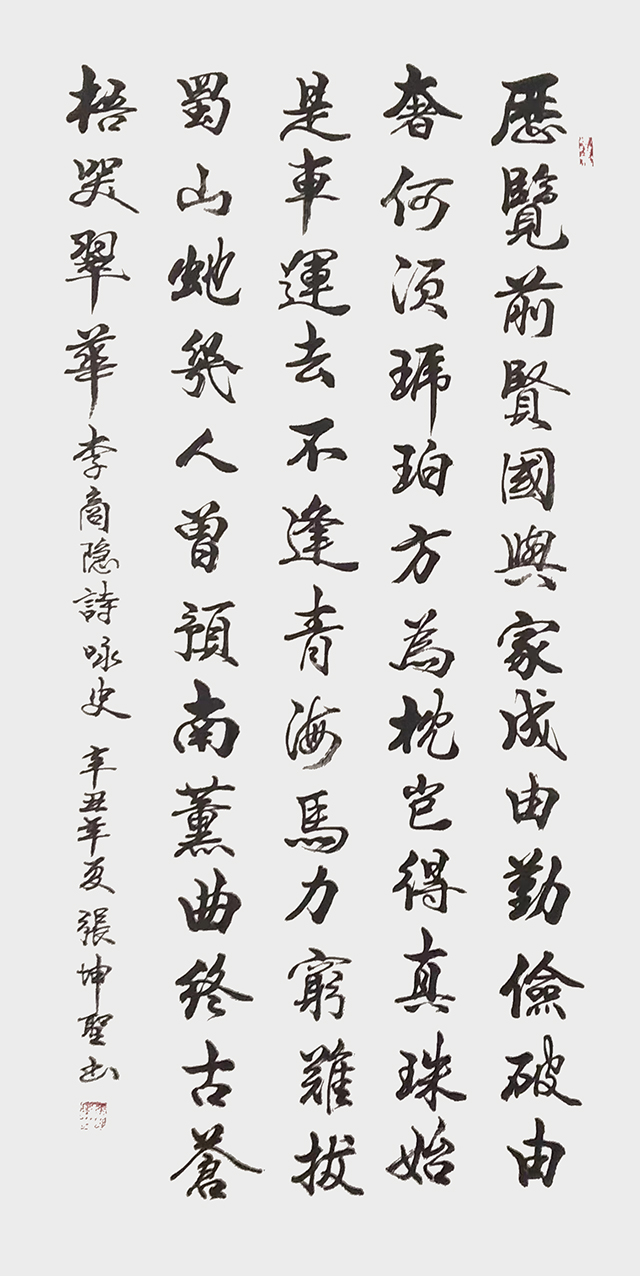 歷覽前賢國與家成由勤儉破由
奢何須琥珀方為枕豈得真珠始
是車運去不逢青海馬力窮難拔
蜀山蛇幾人曾預南薰曲終古蒼
梧哭翠華 李商隐詩咏史 辛丑年夏 張坤聖书